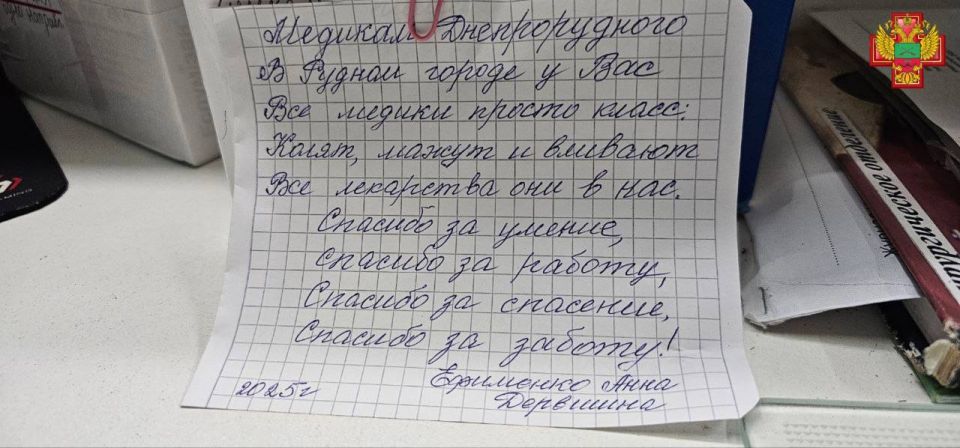 Медикам Днепрорудного
В Рудном городе у Вас
Все медики просто класс:
Колят, мажут и вливают
Все лекарства они в нас.
Спасибо за умение,
спасибо за работу,
Спасибо за спасение,
Спасибо за заботу!
2025г
Ефименко Анна
Дервишина